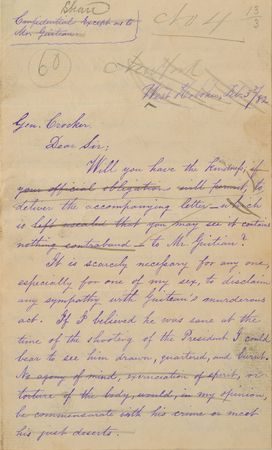 Share
Confidential Except as to
Mr. Guiteau
No 4
13/3
60
West Hoboken, Feb 3d/82
Gen. Crocker.
Dear Sir;
Will you have the kindness, if
your official obligation will permit, to
deliver the accompanying letter – which
is left unsealed that you may see it contains
nothing contraband – to Mr. Guiteau?
It is scarcely necessary for any one,
especially for one of my sex, to disclaim
any sympathy with Guiteau's murderous
act. If I believed he was sane at the
time of the shooting of the President I could
bear to see him drawn, quartered, and burnt.
No agony of mind, excruciation of spirit, or
torture of the body, would, in my opinion,
be commensurate with his crime or meet
his just deserts.